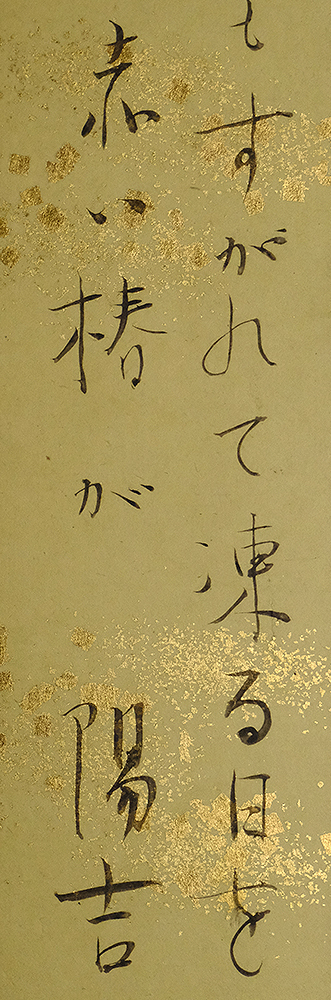 もすがれて凍る日を
赤い椿が 陽吉